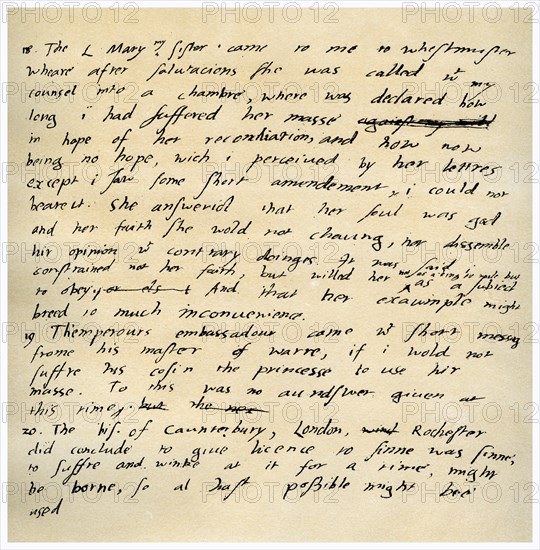 18. The L Mary my sister came to me to Whestmuster
wheare after salutacions she was called wt my
counsel into a chambre, where was declared how
long i had suffered her masse against my will
in hope of her reconciliation, and how now
being no hope, wich i perceiued by her lettres
except i saw some short amendement, i could not
beare it. She answerid that her soul was god
and her faith she wold not chaung, nor dissemble
hir opinion wt contrary doinges. It was said i
constrained not her faith, but willed her not as a king to rule but
to obey, or els i as a subiect And that her exaumple might
breed to much inconuenience.
19 Themperours embassadour came wt short messag
frome his master of warre, if i wold not
suffre his cosin the princesse to use hir
masse. To this was no aundswer giuen at
this time, but the nex
20. The bis. of Caunterbury, London, Rochester
did conclude to giue licence to sinne was sinne;
to suffre and winke at it for a time, might
be borne, so al hast possible might bee
used
PHOTO 12